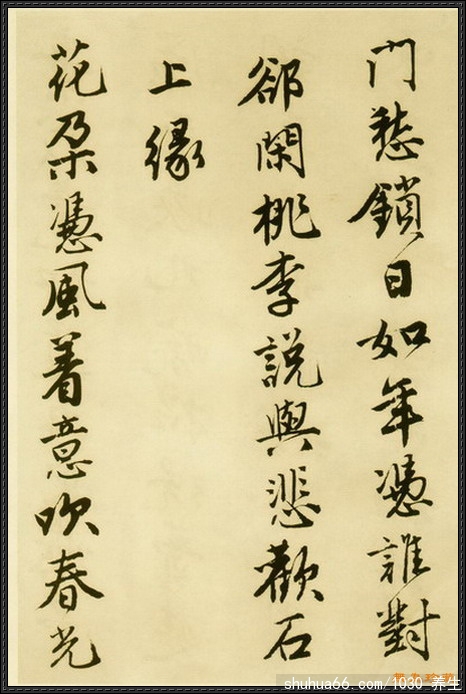 門愁鎖日如年憑誰對
郤閑桃李説與悲歡石
上緣
花朶憑風着意吹春光
shuhua66.com/1030_养生